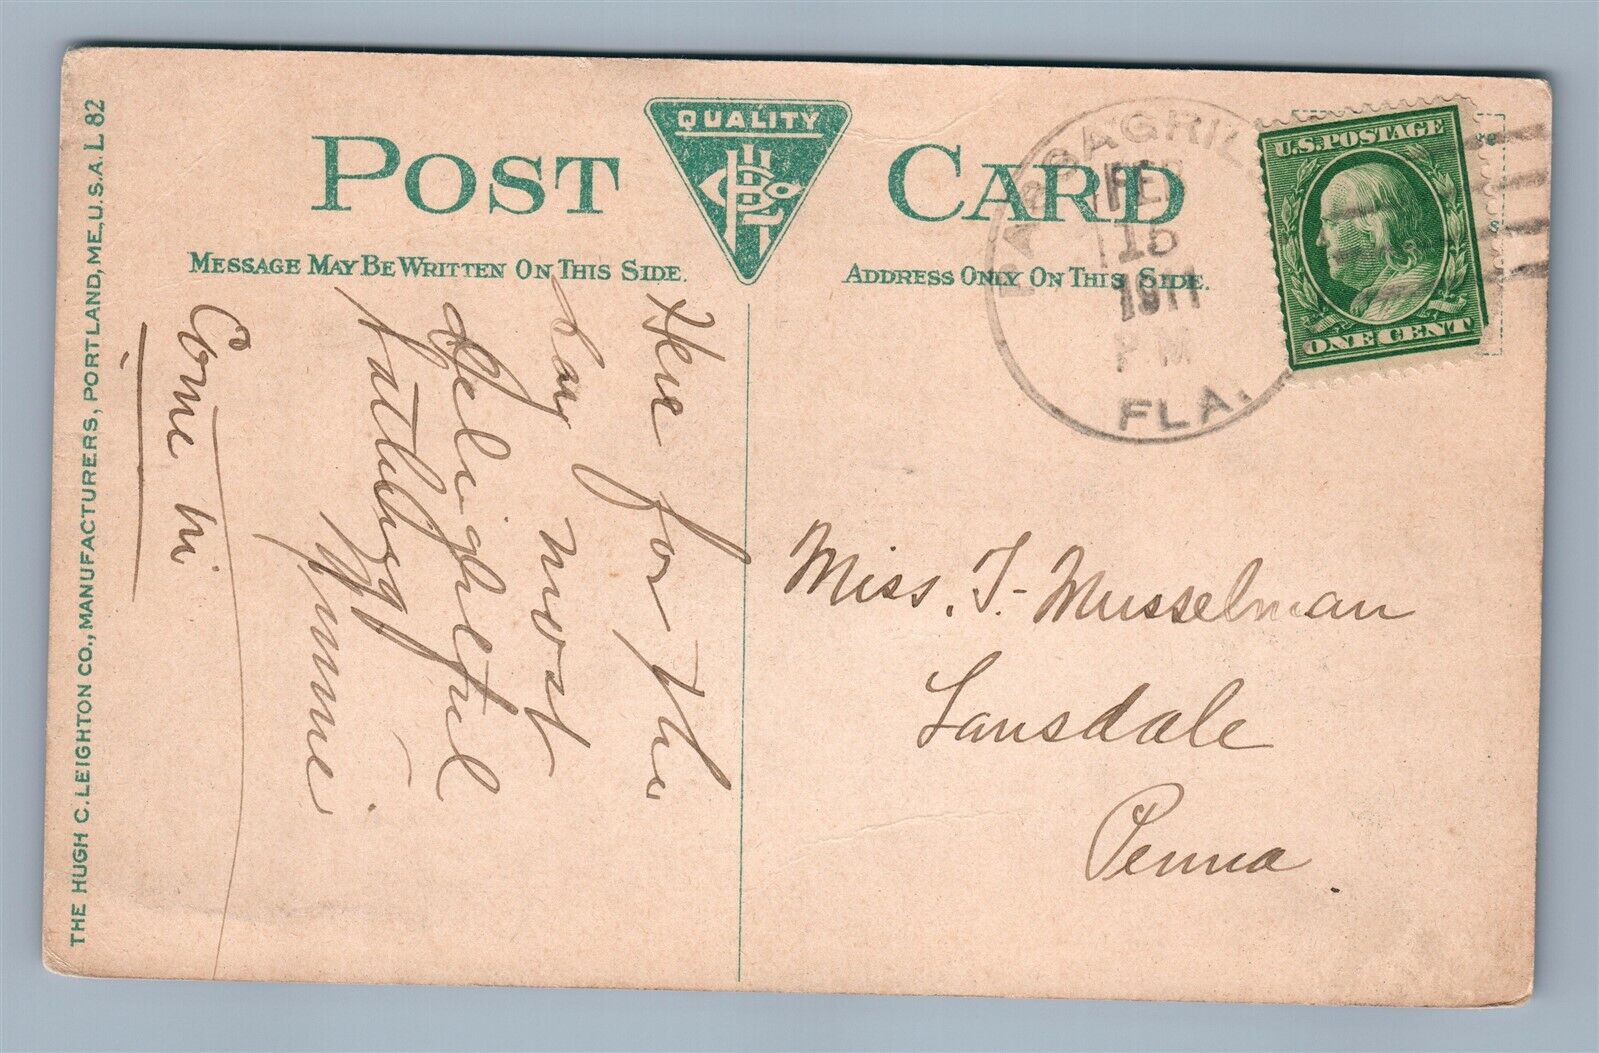 POST CARD
QUALITY
MESSAGE MAY BE WRITTEN ON THIS SIDE.
ADDRESS ONLY ON THIS SIDE.
PASSAGRIL
FEB
15
1911
PM
FLA.
U.S. POSTAGE
ONE CENT
THE HUGH C. LEIGHTON CO., MANUFACTURERS, PORTLAND, ME., U.S.A. L 82
Here for the
day most
delightful
Come in
Miss. T. Musselman
Lansdale
Penna.